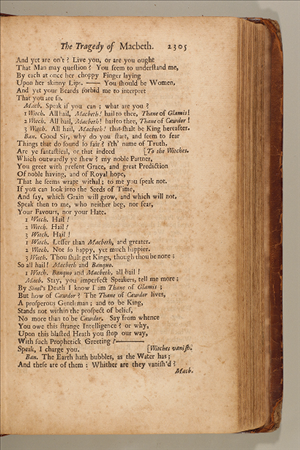 The Tragedy of Macbeth. 2305
And yet are on't? Live you, or are you ought
That Man may question? You seem to understand me,
By each at once her choppy Finger laying
Upon her skinny Lips. —— You should be Women,
And yet your Beards forbid me to interpret
That you are so.
Mach. Speak if you can; what are you?
1 Witch. All hail, Macbeth! hail to thee, Thane of Glamis!
2 Witch. All hail, Macbeth! hail to thee, Thane of Cawdor!
3 Witch. All hail, Macbeth! that shalt be King hereafter.
Ban. Good Sir, why do you start, and seem to fear
Things that do sound so fair? i'th' name of Truth,
Are ye fantastical, or that indeed [To the Witches.
Which outwardly ye shew? my noble Partner,
You greet with present Grace, and great Prediction
Of noble having, and of Royal hope,
That he seems wrapt withal; to me you speak not.
If you can look into the Seeds of Time,
And say, which Grain will grow, and which will not,
Speak then to me, who neither beg, nor fear,
Your Favours, nor your Hate.
1 Witch. Hail!
2 Witch. Hail!
3 Witch. Hail!
1 Witch. Lesser than Macbeth, and greater.
2 Witch. Not so happy, yet much happier.
3 Witch. Thou shalt get Kings, though thou be none;
So all hail! Macbeth and Banquo.
1 Witch. Banquo and Macbeth, all hail!
Macb. Stay, you imperfect Speakers, tell me more;
By Sinel's Death I know I am Thane of Glamis;
But how of Cawdor? The Thane of Cawdor lives,
A prosperous Gentleman; and to be King,
Stands not within the prospect of belief,
No more than to be Cawdor. Say from whence
You owe this strange Intelligence? or why,
Upon this blasted Heath you stop our way,
With such Prophetick Greeting?——
Speak, I charge you. [Witches vanish.
Ban. The Earth hath bubbles, as the Water has;
And these are of them: Whither are they vanish'd?
Macb.